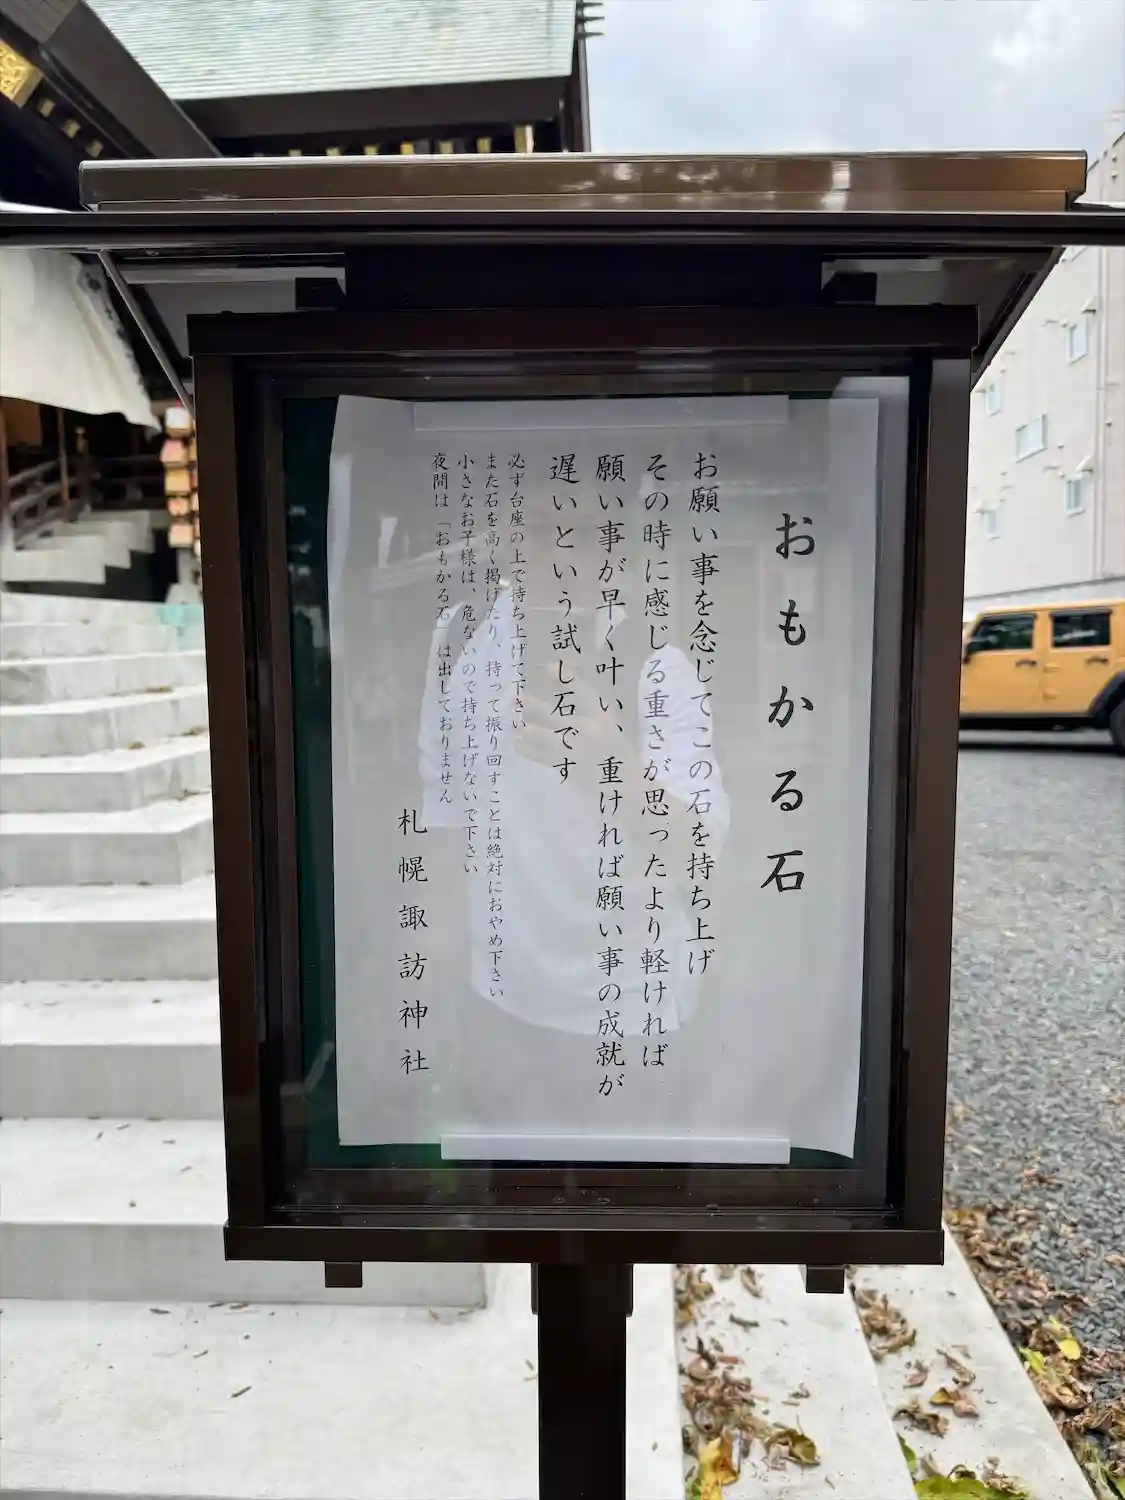 おもかる石
お願い事を念じてこの石を持ち上げ
その時に感じる重さが思ったより軽ければ
願い事が早く叶い、重ければ願い事の成就が
遅いという試し石です
必ず台座の上で持ち上げて下さい
また石を高く掲げたり、持って振り回すことは絶対におやめ下さい
小さなお子様は、危ないので持ち上げないで下さい
夜間は「おもかる石」は出しておりません
札幌諏訪神社